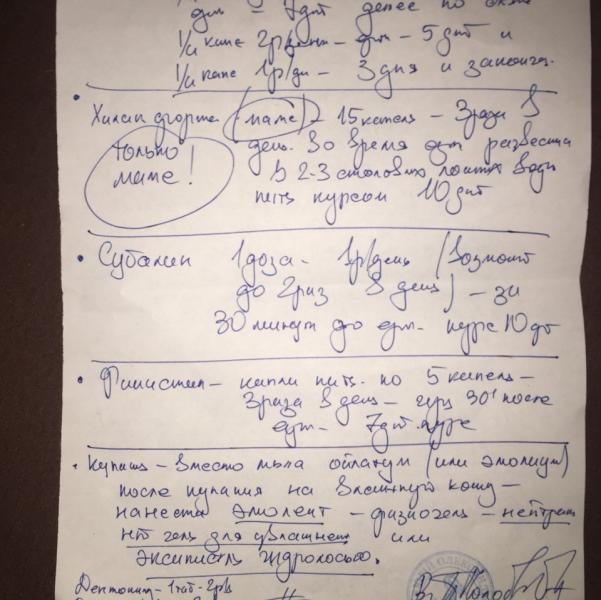 дня - 7дн далее по схеме
1/4 капс 2р/день - дня - 5дн и
1/4 капс 1р/дн - 3дня и закончи.
• Хилак форте (маме) - 15 капель - 3раза в
только маме!
день. Во время еды развести
в 2-3 столовых ложках воды
пить курсом 10дн
• Субалин 1доза - 1р/день (возмож
до 2раз в день) - за
30 минут до еды - курс 10дн
• Фенистил - капли пить по 5 капель -
3раза в день - через 30' после
еды - 7дн курс
• Купать - вместо мыла ойлатум (или эмолиум)
после купания на влажную кожу -
нанести эмолент - физиогель -
гель для увлажнен или
гидролосьо.
1таб - 2р/